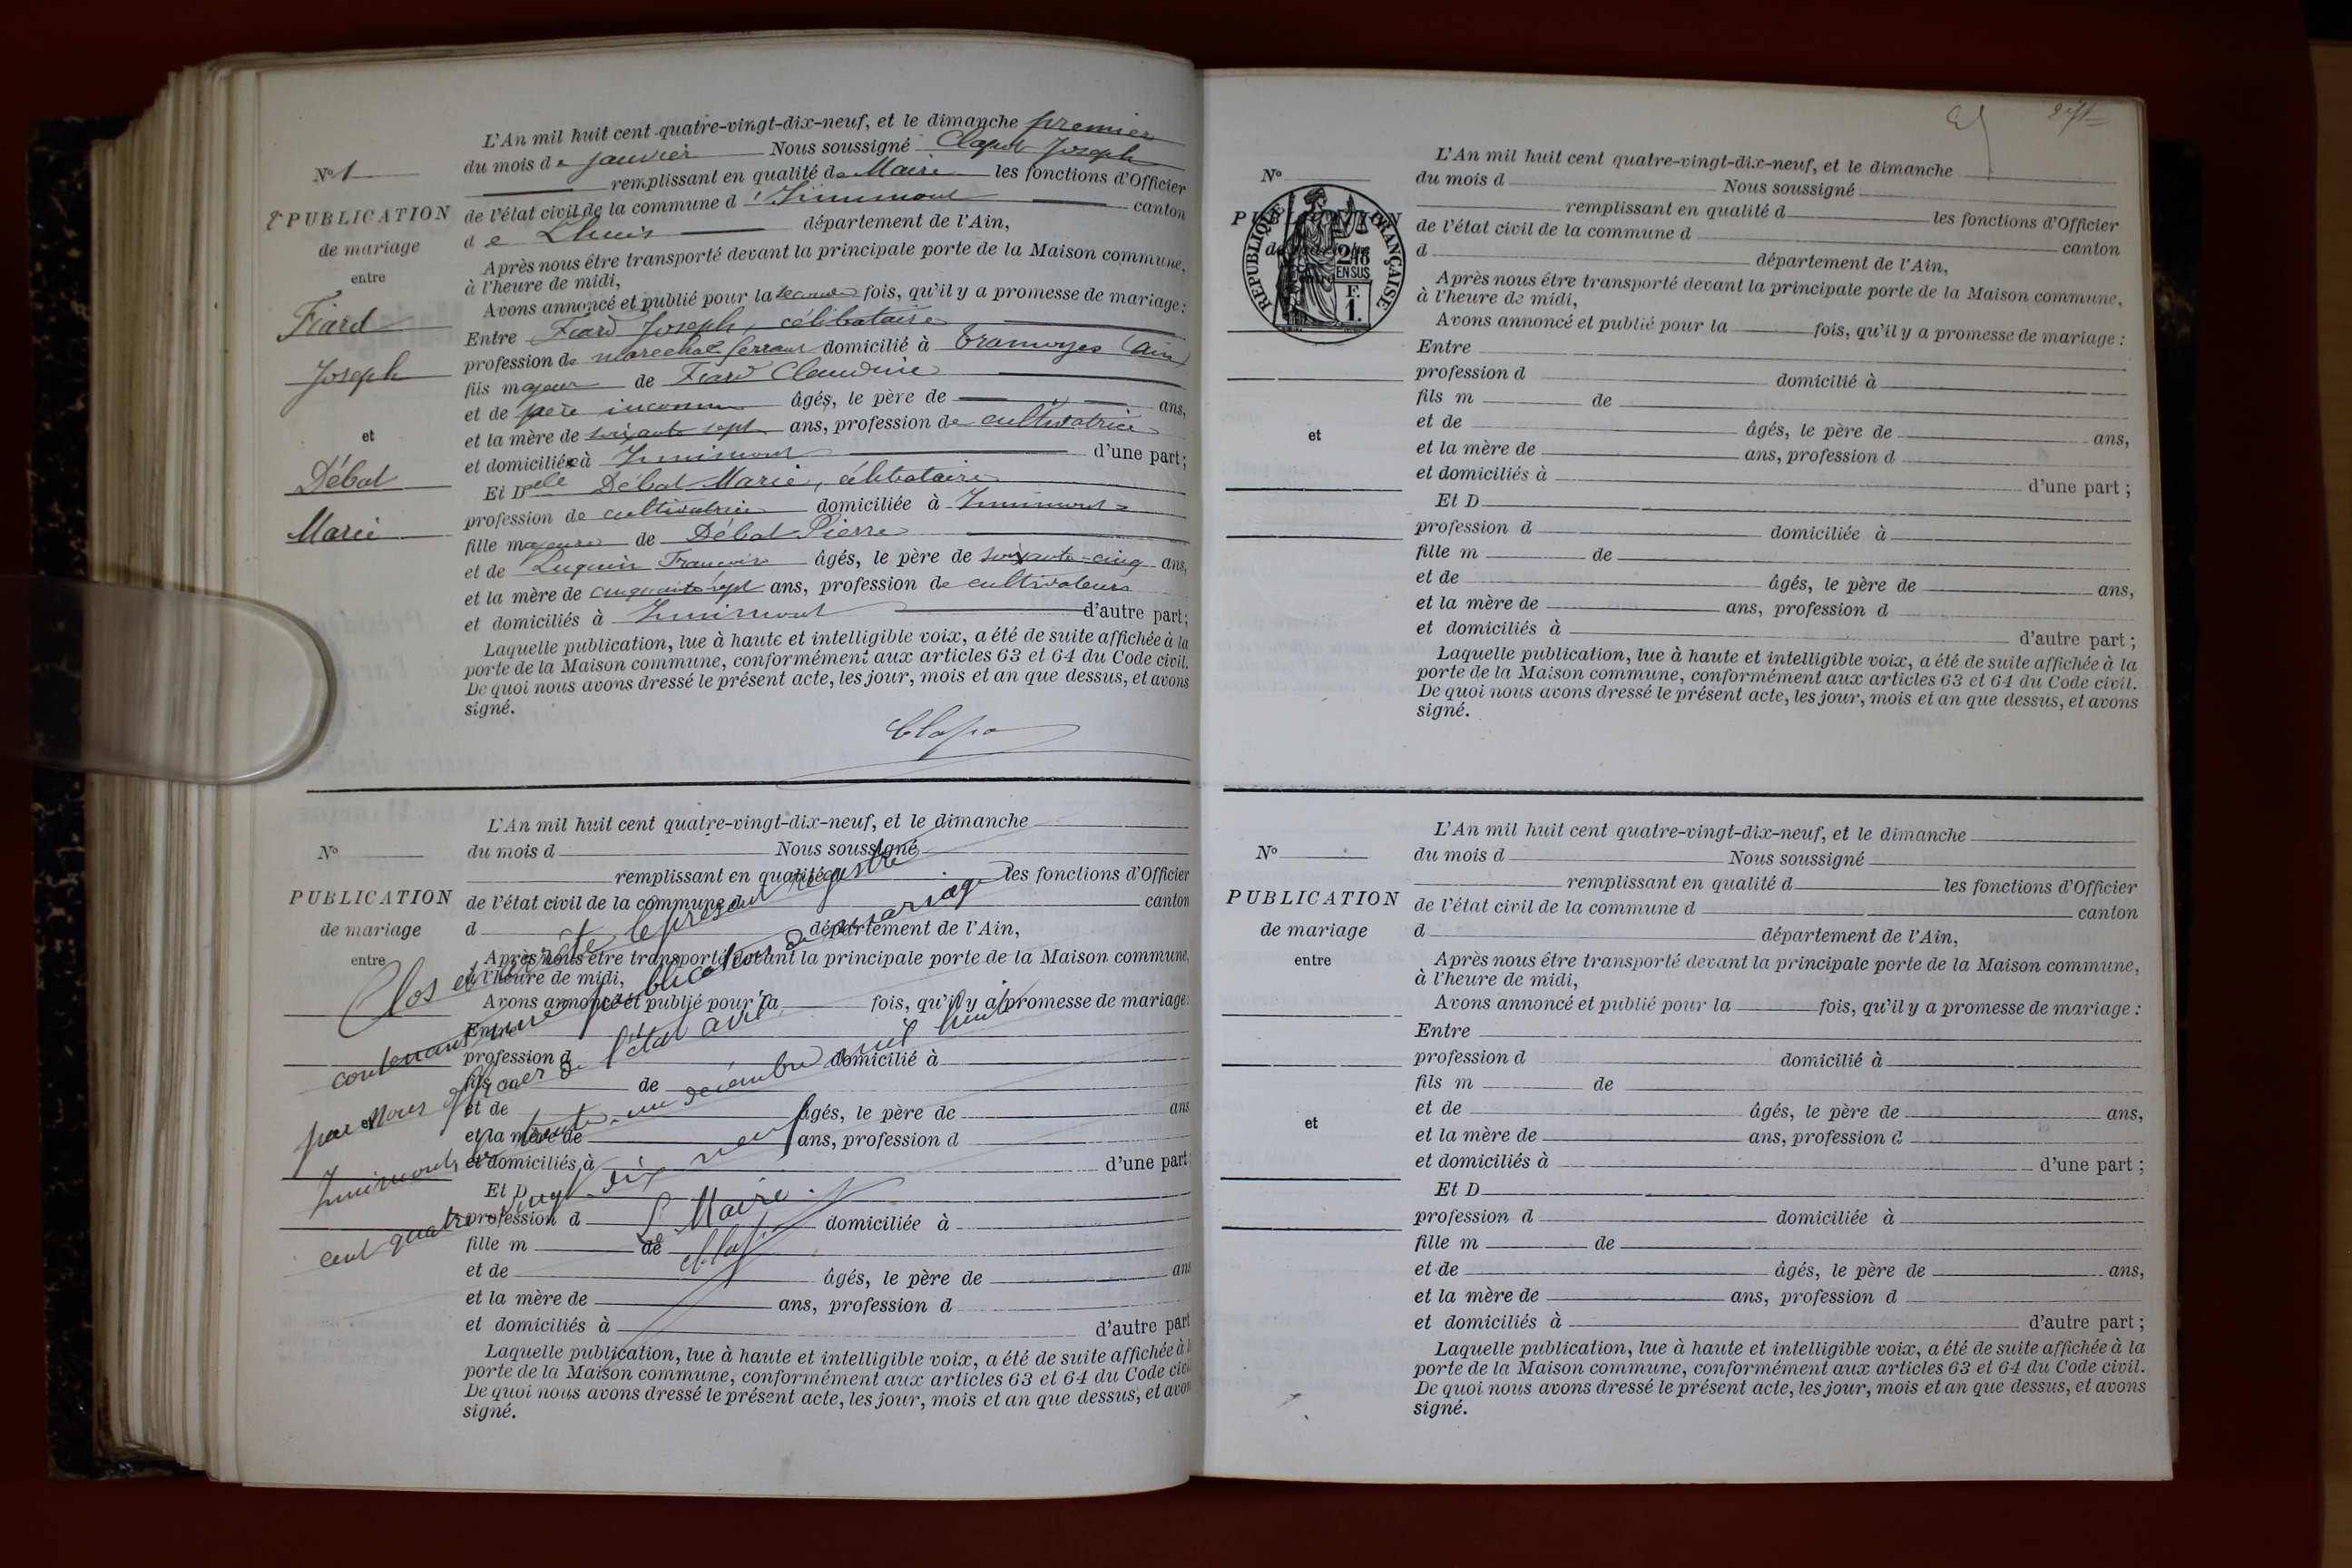 L'An mil huit cent quatre-vingt-dix-neuf, et le dimanche premier
N° 1
du mois de janvier Nous soussigné Clapot Joseph
remplissant en qualité de Maire les fonctions d'Officier
2e PUBLICATION
de mariage
entre
Fiard
Joseph
et
Débat
Marie
de l'état civil de la commune d'Innimont canton
de Lhuis département de l'Ain,
Après nous être transporté devant la principale porte de la Maison commune,
à l'heure de midi,
Avons annoncé et publié pour la seconde fois, qu'il y a promesse de mariage :
Entre Fiard Joseph, célibataire
profession de maréchal ferrant domicilié à Tramoyes (Ain)
fils majeur de Fiard Claudine
et de père inconnu âgés, le père de ans,
et la mère de soixante sept ans, profession de cultivatrice
et domiciliée à Innimont d'une part ;
Et Delle Débat Marie, célibataire
profession de cultivatrice domiciliée à Innimont
fille majeure de Débat Pierre
et de Luquin Françoise âgés, le père de soixante-cinq ans,
et la mère de cinquante sept ans, profession de cultivateurs
et domiciliés à Innimont d'autre part ;
Laquelle publication, lue à haute et intelligible voix, a été de suite affichée à la
porte de la Maison commune, conformément aux articles 63 et 64 du Code civil.
De quoi nous avons dressé le présent acte, les jour, mois et an que dessus, et avons
signé.
Clapo
L'An mil huit cent quatre-vingt-dix-neuf, et le dimanche
N°
du mois d Nous soussigné
remplissant en qualité d les fonctions d'Officier
PUBLICATION
de mariage
entre
et
de l'état civil de la commune d canton
d département de l'Ain,
Après nous être transporté devant la principale porte de la Maison commune,
à l'heure de midi,
Avons annoncé et publié pour la fois, qu'il y a promesse de mariage :
Entre
profession d domicilié à
fils m de
et de âgés, le père de ans
et la mère de ans, profession d
et domiciliés à d'une part ;
Et D
profession d domiciliée à
fille m de
et de âgés, le père de ans
et la mère de ans, profession d
et domiciliés à d'autre part
Laquelle publication, lue à haute et intelligible voix, a été de suite affichée à l
porte de la Maison commune, conformément aux articles 63 et 64 du Code civil
De quoi nous avons dressé le présent acte, les jour, mois et an que dessus, et avon
signé.
Clos et arrêté le présent registre
contenant une publication de mariage
par Nous officier de l'état civil
Innimont, le trente-un décembre mil huit
cent quatre vingt dix neuf
Le Maire
Clapo
L'An mil huit cent quatre-vingt-dix-neuf, et le dimanche
N°
du mois d Nous soussigné
remplissant en qualité d les fonctions d'Officier
PUBLICATION
de mariage
entre
et
RÉPUBLIQUE FRANÇAISE
2/10
EN SUS
F.
1.
de l'état civil de la commune d canton
d département de l'Ain,
Après nous être transporté devant la principale porte de la Maison commune,
à l'heure de midi,
Avons annoncé et publié pour la fois, qu'il y a promesse de mariage :
Entre
profession d domicilié à
fils m de
et de âgés, le père de ans,
et la mère de ans, profession d
et domiciliés à d'une part ;
Et D
profession d domiciliée à
fille m de
et de âgés, le père de ans,
et la mère de ans, profession d
et domiciliés à d'autre part ;
Laquelle publication, lue à haute et intelligible voix, a été de suite affichée à la
porte de la Maison commune, conformément aux articles 63 et 64 du Code civil.
De quoi nous avons dressé le présent acte, les jour, mois et an que dessus, et avons
signé.
L'An mil huit cent quatre-vingt-dix-neuf, et le dimanche
N°
du mois d Nous soussigné
remplissant en qualité d les fonctions d'Officier
PUBLICATION
de mariage
entre
et
de l'état civil de la commune d canton
d département de l'Ain,
Après nous être transporté devant la principale porte de la Maison commune,
à l'heure de midi,
Avons annoncé et publié pour la fois, qu'il y a promesse de mariage :
Entre
profession d domicilié à
fils m de
et de âgés, le père de ans,
et la mère de ans, profession d
et domiciliés à d'une part ;
Et D
profession d domiciliée à
fille m de
et de âgés, le père de ans,
et la mère de ans, profession d
et domiciliés à d'autre part ;
Laquelle publication, lue à haute et intelligible voix, a été de suite affichée à la
porte de la Maison commune, conformément aux articles 63 et 64 du Code civil.
De quoi nous avons dressé le présent acte, les jour, mois et an que dessus, et avons
signé.